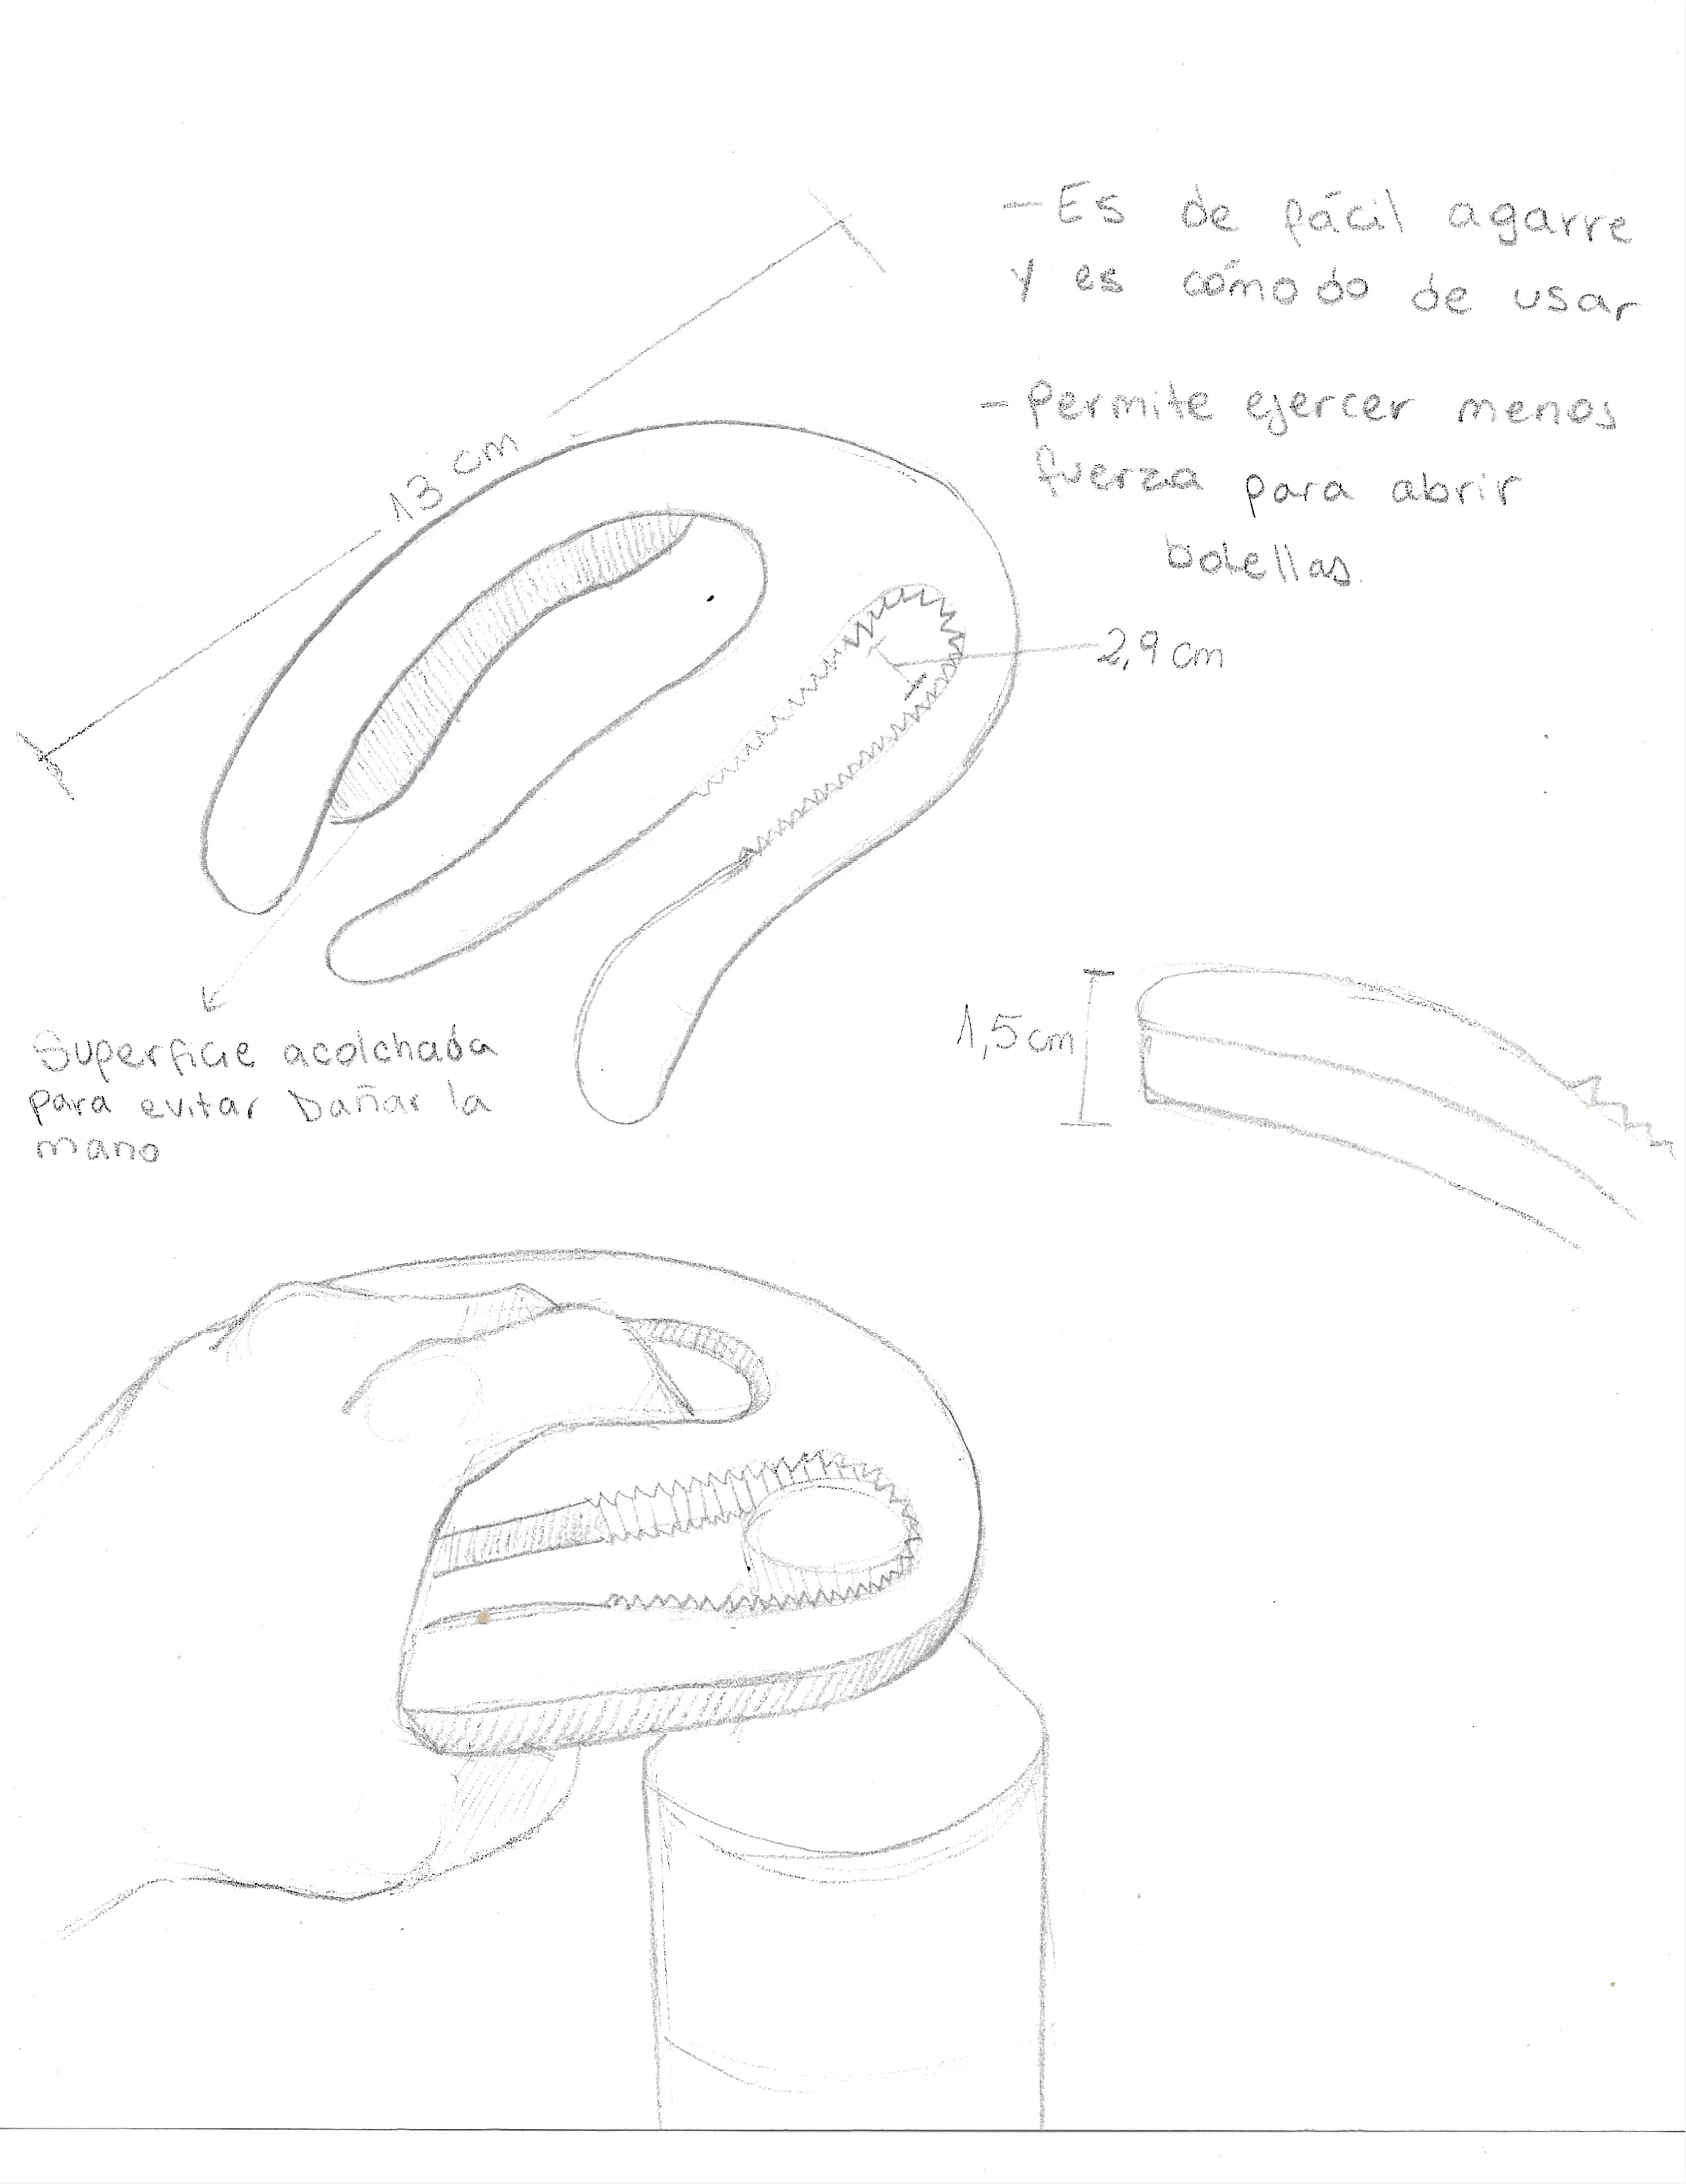 - Es de fácil agarre
y es cómodo de usar
- Permite ejercer menos
fuerza para abrir
botellas.
13 cm
2,9 cm
1,5 cm
Superficie acolchada
para evitar Dañar la
mano